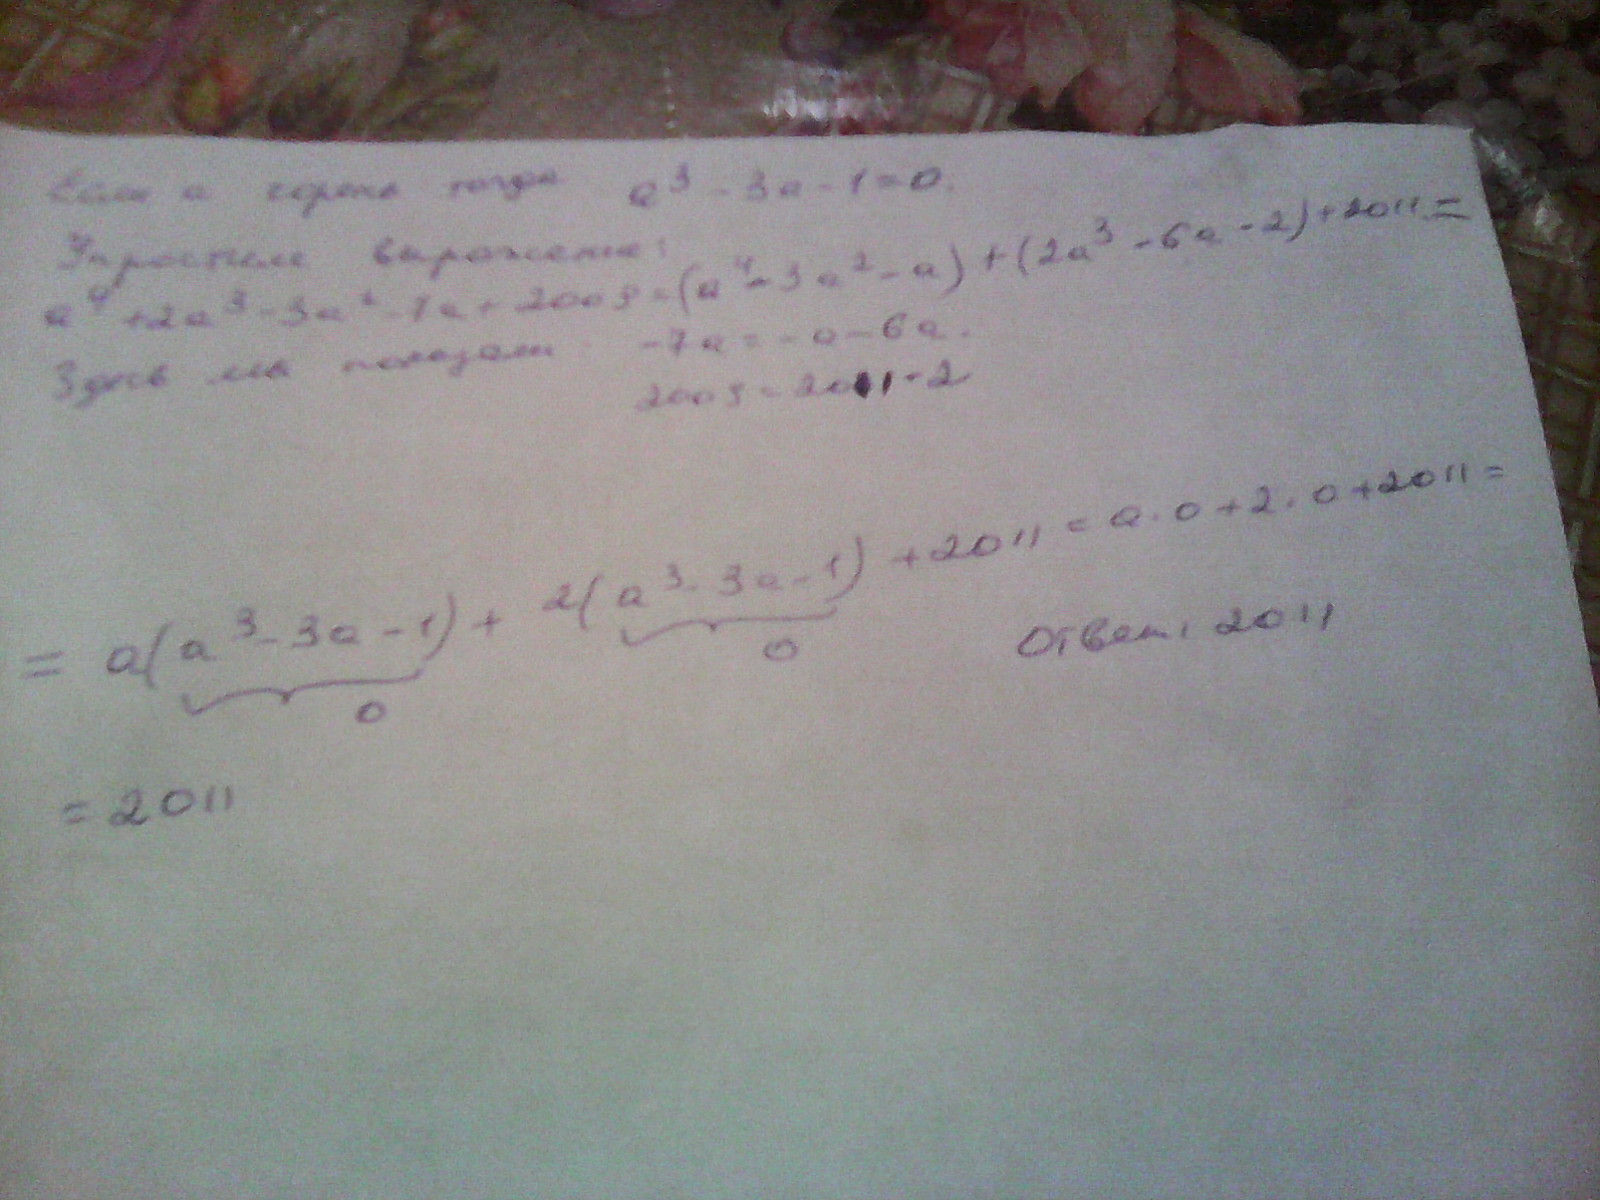 Если a корень тогда a³ - 3a - 1 = 0.
Упростим выражение:
a⁴ + 2a³ - 3a² - 7a + 2009 = (a⁴ - 3a² - a) + (2a³ - 6a - 2) + 2011 =
Здесь мы показали: -7a = -a - 6a.
2009 = 2011 - 2
= a(a³ - 3a - 1) + 2(a³ - 3a - 1) + 2011 = a·0 + 2·0 + 2011 =
0 0
Ответ: 2011
= 2011